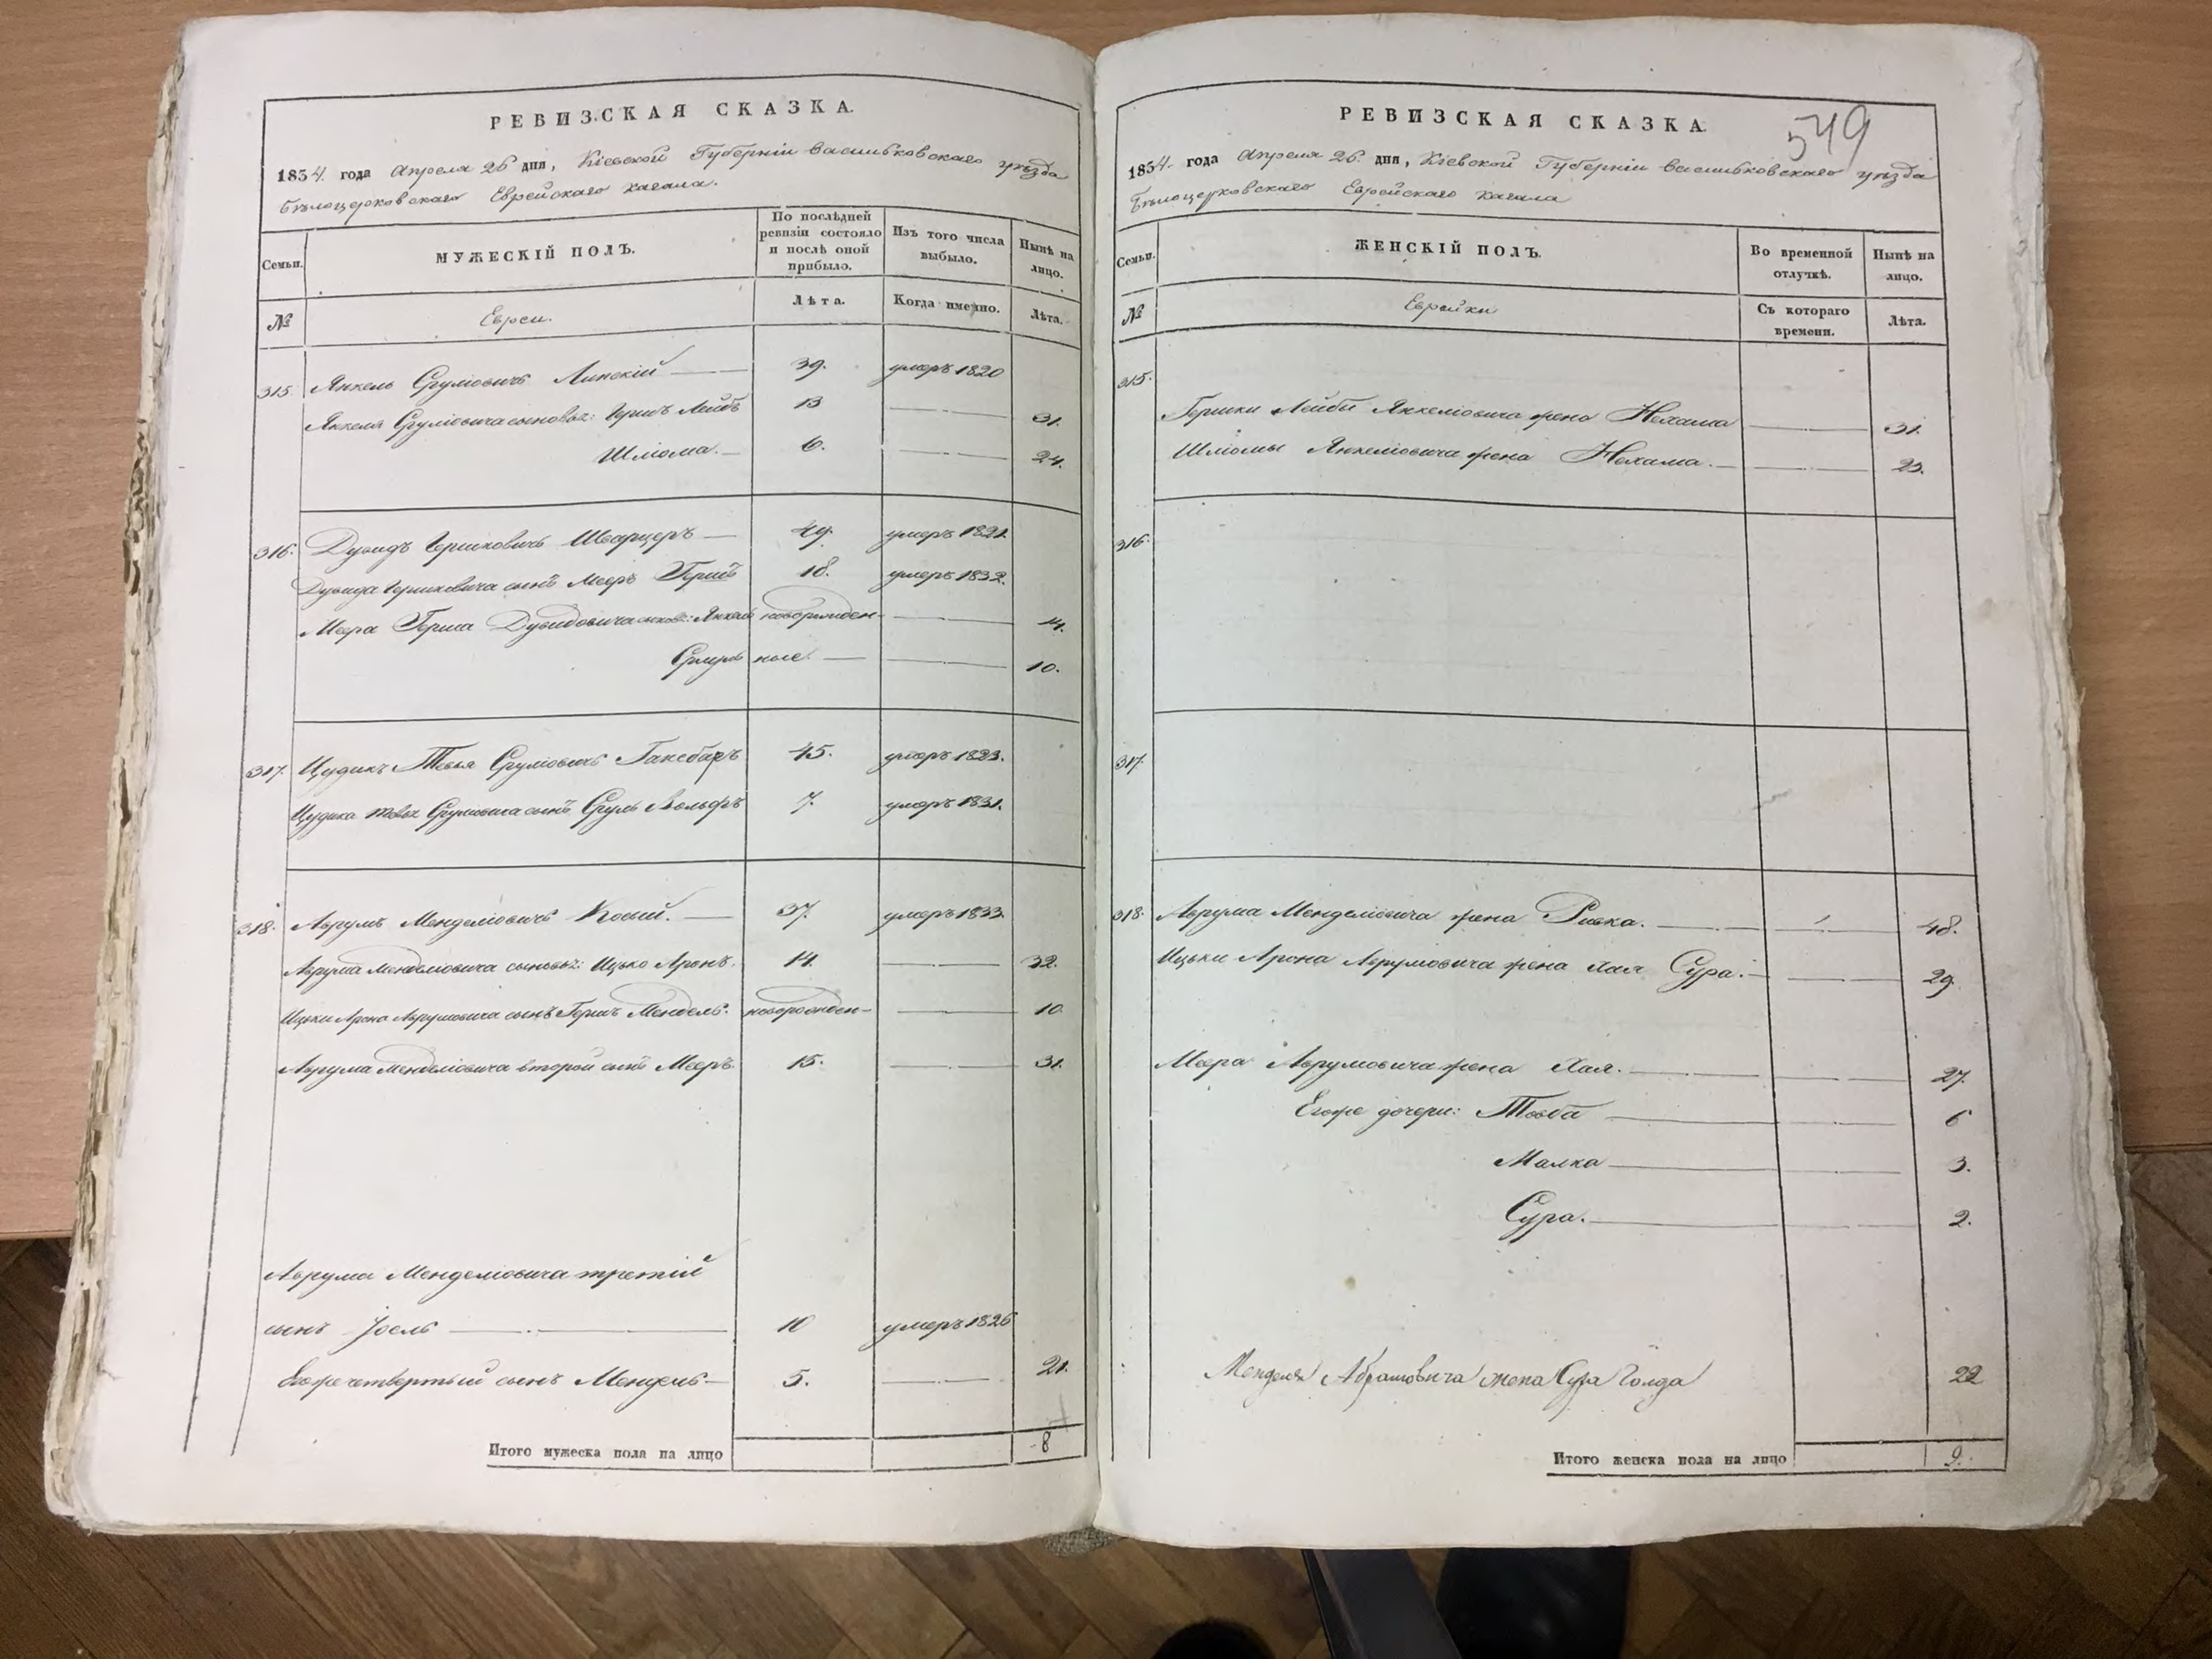 РЕВИЗСКАЯ СКАЗКА.
1834. года Апреля 26 дня, Кіевской Губерніи Васильковскаго уѣзда
Бѣлоцерковскаго Еврейскаго кагала.
Семьи. МУЖЕСКІЙ ПОЛЪ. По послѣдней ревизіи состояло и послѣ оной прибыло. Изъ того числа выбыло. Нынѣ на лицо.
№ Евреи. Лѣта. Когда именно. Лѣта.
315. Янкель Сруліовичъ Липскій 39. умеръ 1820
Янкеля Сруліовича сыновья: Гершъ Лейбъ 13 31.
Шліома. 6. 24.
316. Дувидъ Гершковичъ Шварцеръ 49. умеръ 1821.
Дувида Гершковича сынъ Мееръ Гершъ 18. умеръ 1832.
Меера Герша Дувидовича сынов: Янкель новорожден- 14.
Сруль ные. 10.
317. Цудикъ Тевья Сруліовичъ 45. умеръ 1823.
Цудика Тевьи Сруліовича сынъ Сруль Вольфъ 7. умеръ 1831.
318. Аврумъ Менделіовичъ Косый. 37. умеръ 1833.
Аврума Менделіовича сыновья: Ицько Аронъ. 14. 32.
Ицьки Арона Аврумовича сынъ Гершъ Мендель. новорожден- 10
Аврума Менделіовича второй сынъ Мееръ. 15. 31.
Аврума Менделіовича третій
сынъ Іосль 10 умеръ 1826
Егоже четвертый сынъ Мендель 5. 21.
Итого мужеска пола на лицо 8
РЕВИЗСКАЯ СКАЗКА.
549
1834. года Апреля 26. дня, Кіевской Губерніи Васильковскаго уѣзда
Бѣлоцерковскаго Еврейскаго кагала
Семьи. ЖЕНСКІЙ ПОЛЪ. Во временной отлучкѣ. Нынѣ на лицо.
№ Еврейки Съ котораго времени. Лѣта.
315.
Гершки Лейбы Янкеліовича жена Нехама 31.
Шліомы Янкеліовича жена Нехама. 23.
316.
317.
318. Аврума Менделіовича жена Ривка. 48.
Ицьки Арона Аврумовича жена Хая Сура. 29.
Меера Аврумовича жена Хая. 27.
Егоже дочери: Товба 6
Малка 3.
Сура. 2.
Менделя Абрамовича жена Сура Голда 22
Итого женска пола на лицо 9.